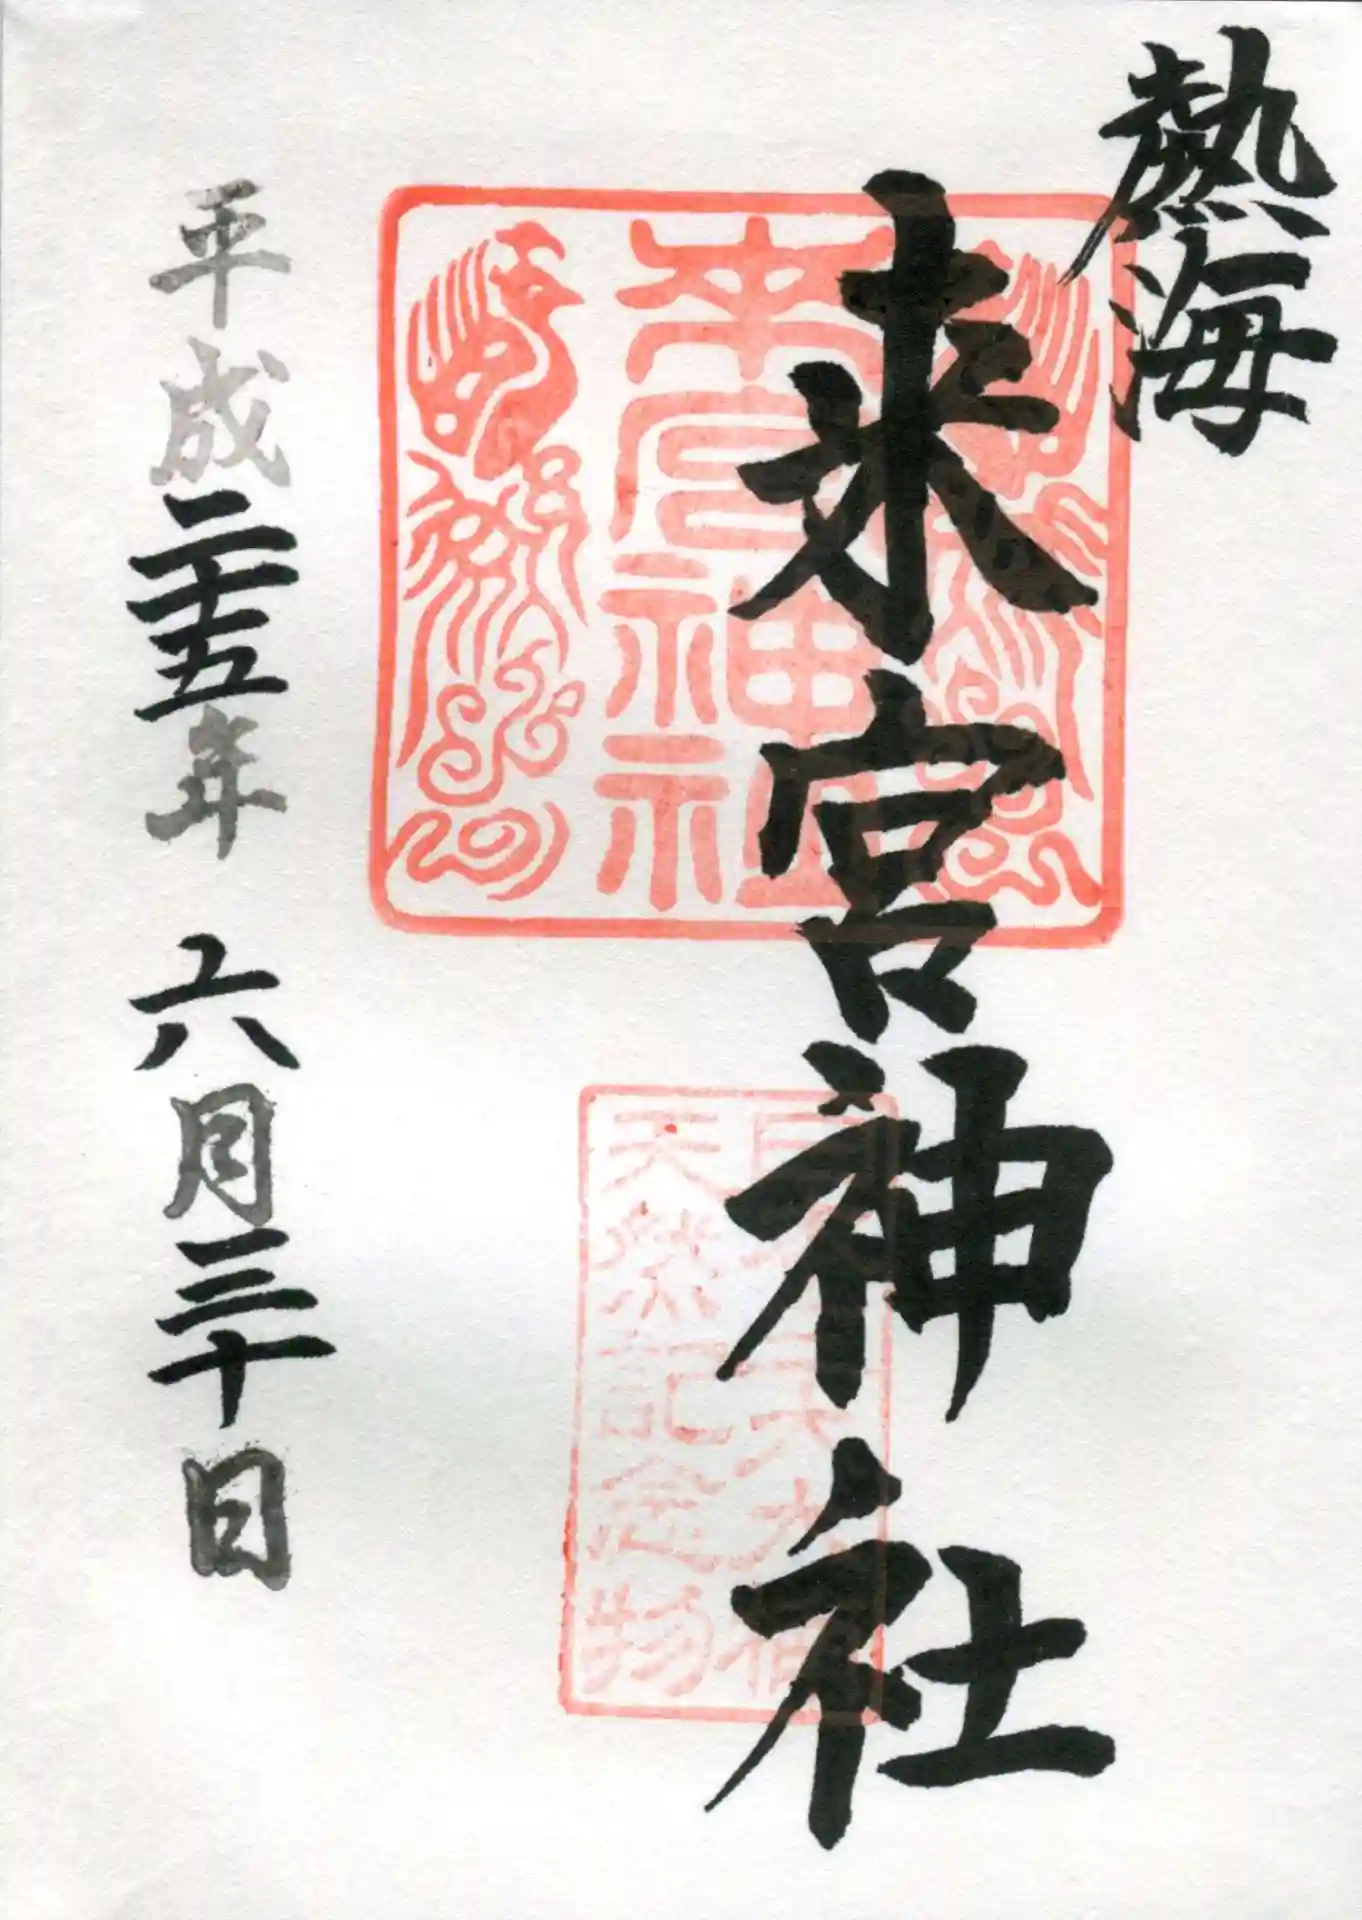 熱海
來宮神社
来宮神社
天然記念物
平成二十五年 六月三十日